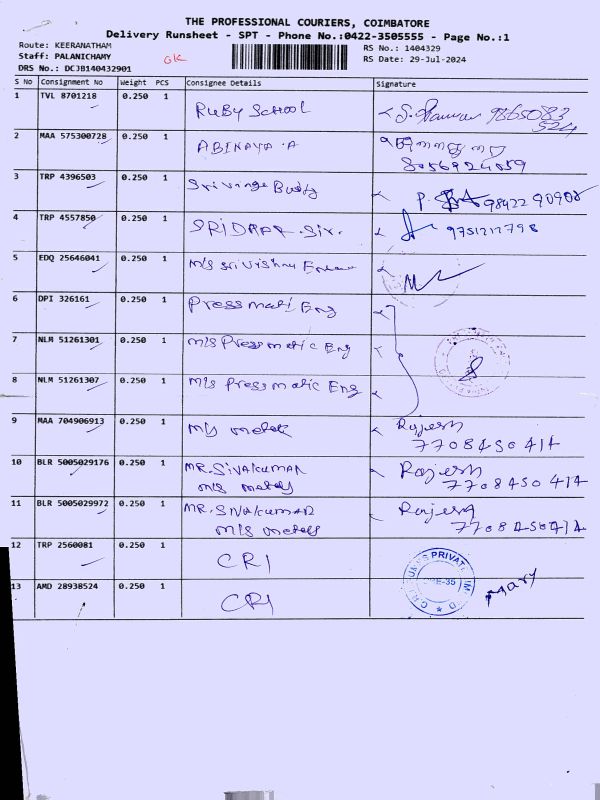 THE PROFESSIONAL COURIERS, COIMBATORE
Delivery Runsheet - SPT - Phone No.:0422-3505555 - Page No.:1
Route: KEERANATHAM
RS No.: 1404329
Staff: PALANICHAMY
GK
RS Date: 29-Jul-2024
DRS No.: DCJB140432901
S No Consignment No Weight PCS Consignee Details Signature
1 TVL 8701218 0.250 1 RUBY SCHOOL 9865083
524
2 MAA 575300728 0.250 1 ABINAYA .A
8056924059
3 TRP 4396503 0.250 1 P. 98422 90908
4 TRP 4557850 0.250 1 9751212798
5 EDQ 25646041 0.250 1 M/s Sri Vishnu
6 DPI 326161 0.250 1 Pressmatic Eng
7 NLM 51261301 0.250 1 M/s Pressmatic Eng
8 NLM 51261307 0.250 1 M/s Pressmatic Eng
9 MAA 704906913 0.250 1 M/s Rajesh
7708450414
10 BLR 5005029176 0.250 1 MR.SIVAKUMAR Rajesh
M/s 7708450414
11 BLR 5005029972 0.250 1 MR.SIVAKUMAR Rajesh
M/s 7708450414
12 TRP 2560081 0.250 1 CRI
13 AMD 28938524 0.250 1 CRI Mary